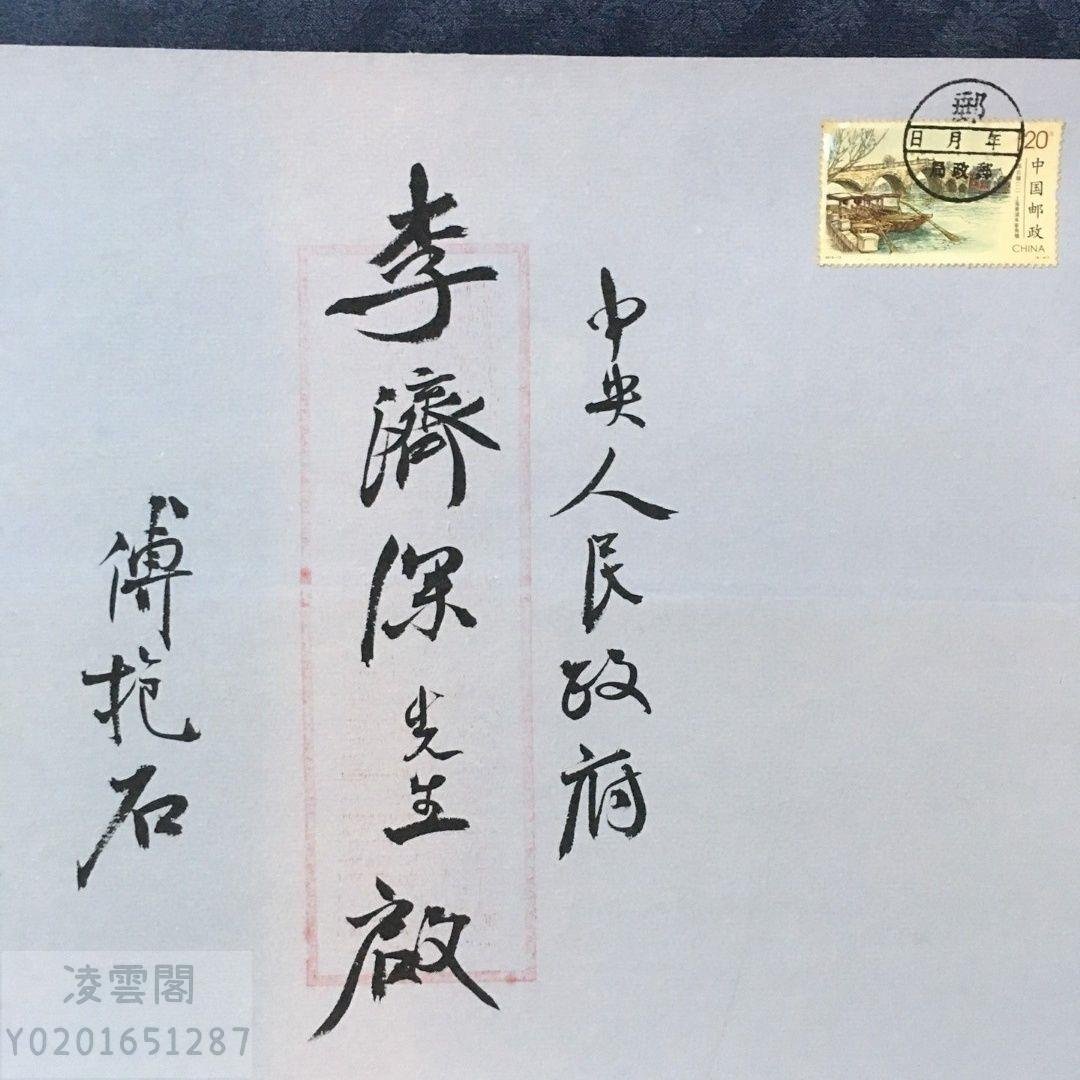 中央人民政府
李濟深先生啟
傅抱石
郵
日月年
局政郵
20
中国邮政
CHINA
凌雲閣
Y0201651287